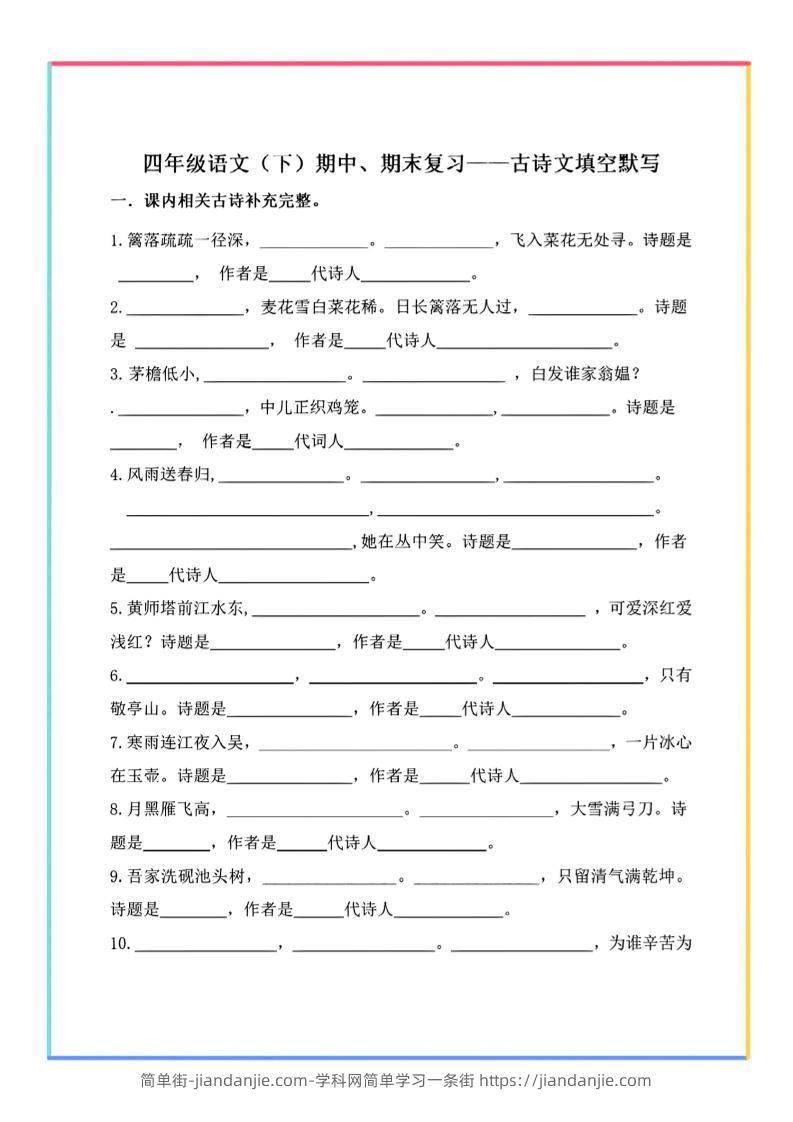 四年级语文（下）期中、期末复习——古诗文填空默写
一．课内相关古诗补充完整。
1.篱落疏疏一径深，_____________。_____________，飞入菜花无处寻。诗题是
_________， 作者是_____代诗人_____________。
2.______________，麦花雪白菜花稀。日长篱落无人过，_____________。诗题
是 ________________， 作者是_____代诗人_____________________。
3. 茅檐低小,_________________。_________________ ，白发谁家翁媪？
._______________，中儿正织鸡笼。______________,_____________。诗题是
________， 作者是_____代词人_____________。
4.风雨送春归,_______________。________________,__________________。
_____________________________,_________________________________。
_____________________________,她在丛中笑。诗题是_______________，作者
是_____代诗人__________________。
5.黄师塔前江水东,____________________。__________________ ，可爱深红爱
浅红？诗题是_______________，作者是_____代诗人_______________。
6.____________________，____________________。__________________，只有
敬亭山。诗题是_______________，作者是_____代诗人_____________。
7.寒雨连江夜入吴，_______________________。_________________，一片冰心
在玉壶。诗题是_______________，作者是______代诗人_________________。
8.月黑雁飞高，_____________________。________________，大雪满弓刀。诗
题是________，作者是______代诗人_____________。
9.吾家洗砚池头树，________________。_______________，只留清气满乾坤。
诗题是________，作者是______代诗人_____________。
10._________________，_________________。_________________，为谁辛苦为
简单街-jiandanjie.com-学科网简单学习一条街 https://jiandanjie.com